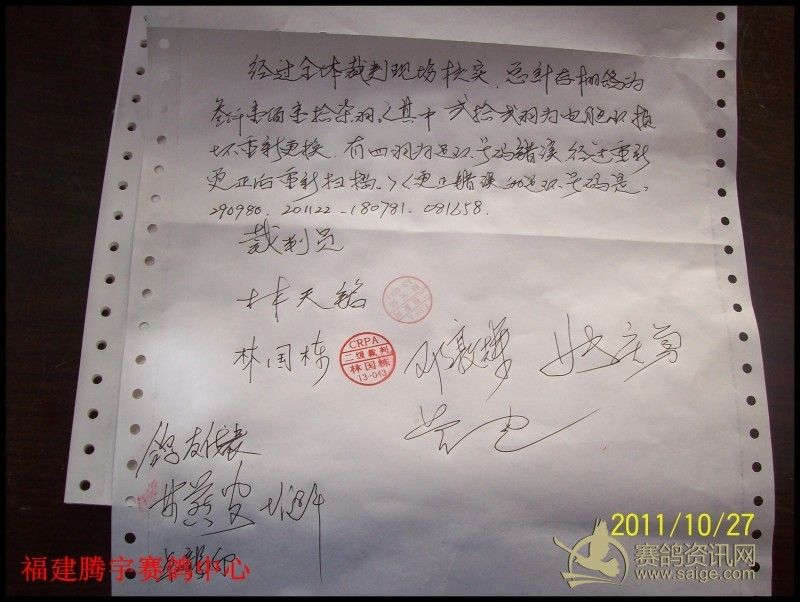 经过全体裁判现场核实,总计存棚鸽为
叁仟壹佰壹拾柒羽,其中 贰拾贰羽为电脑环损
坏重新更换,有四羽为足环号码错误经过重新
更正后重新扫描。(更正错误的足环号码是:
290980. 201122 - 180781. 081658.
裁判员
林天铭
林国栋
CRPA
二级裁判
林国栋
13-043
鸽友代表
2011/10/27
福建腾宇赛鸽中心
赛鸽资讯网
www.saige.com